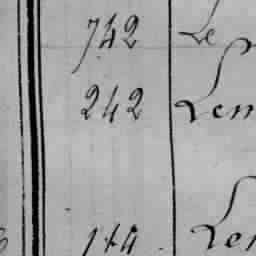 742 Le
242 Len
144 Len